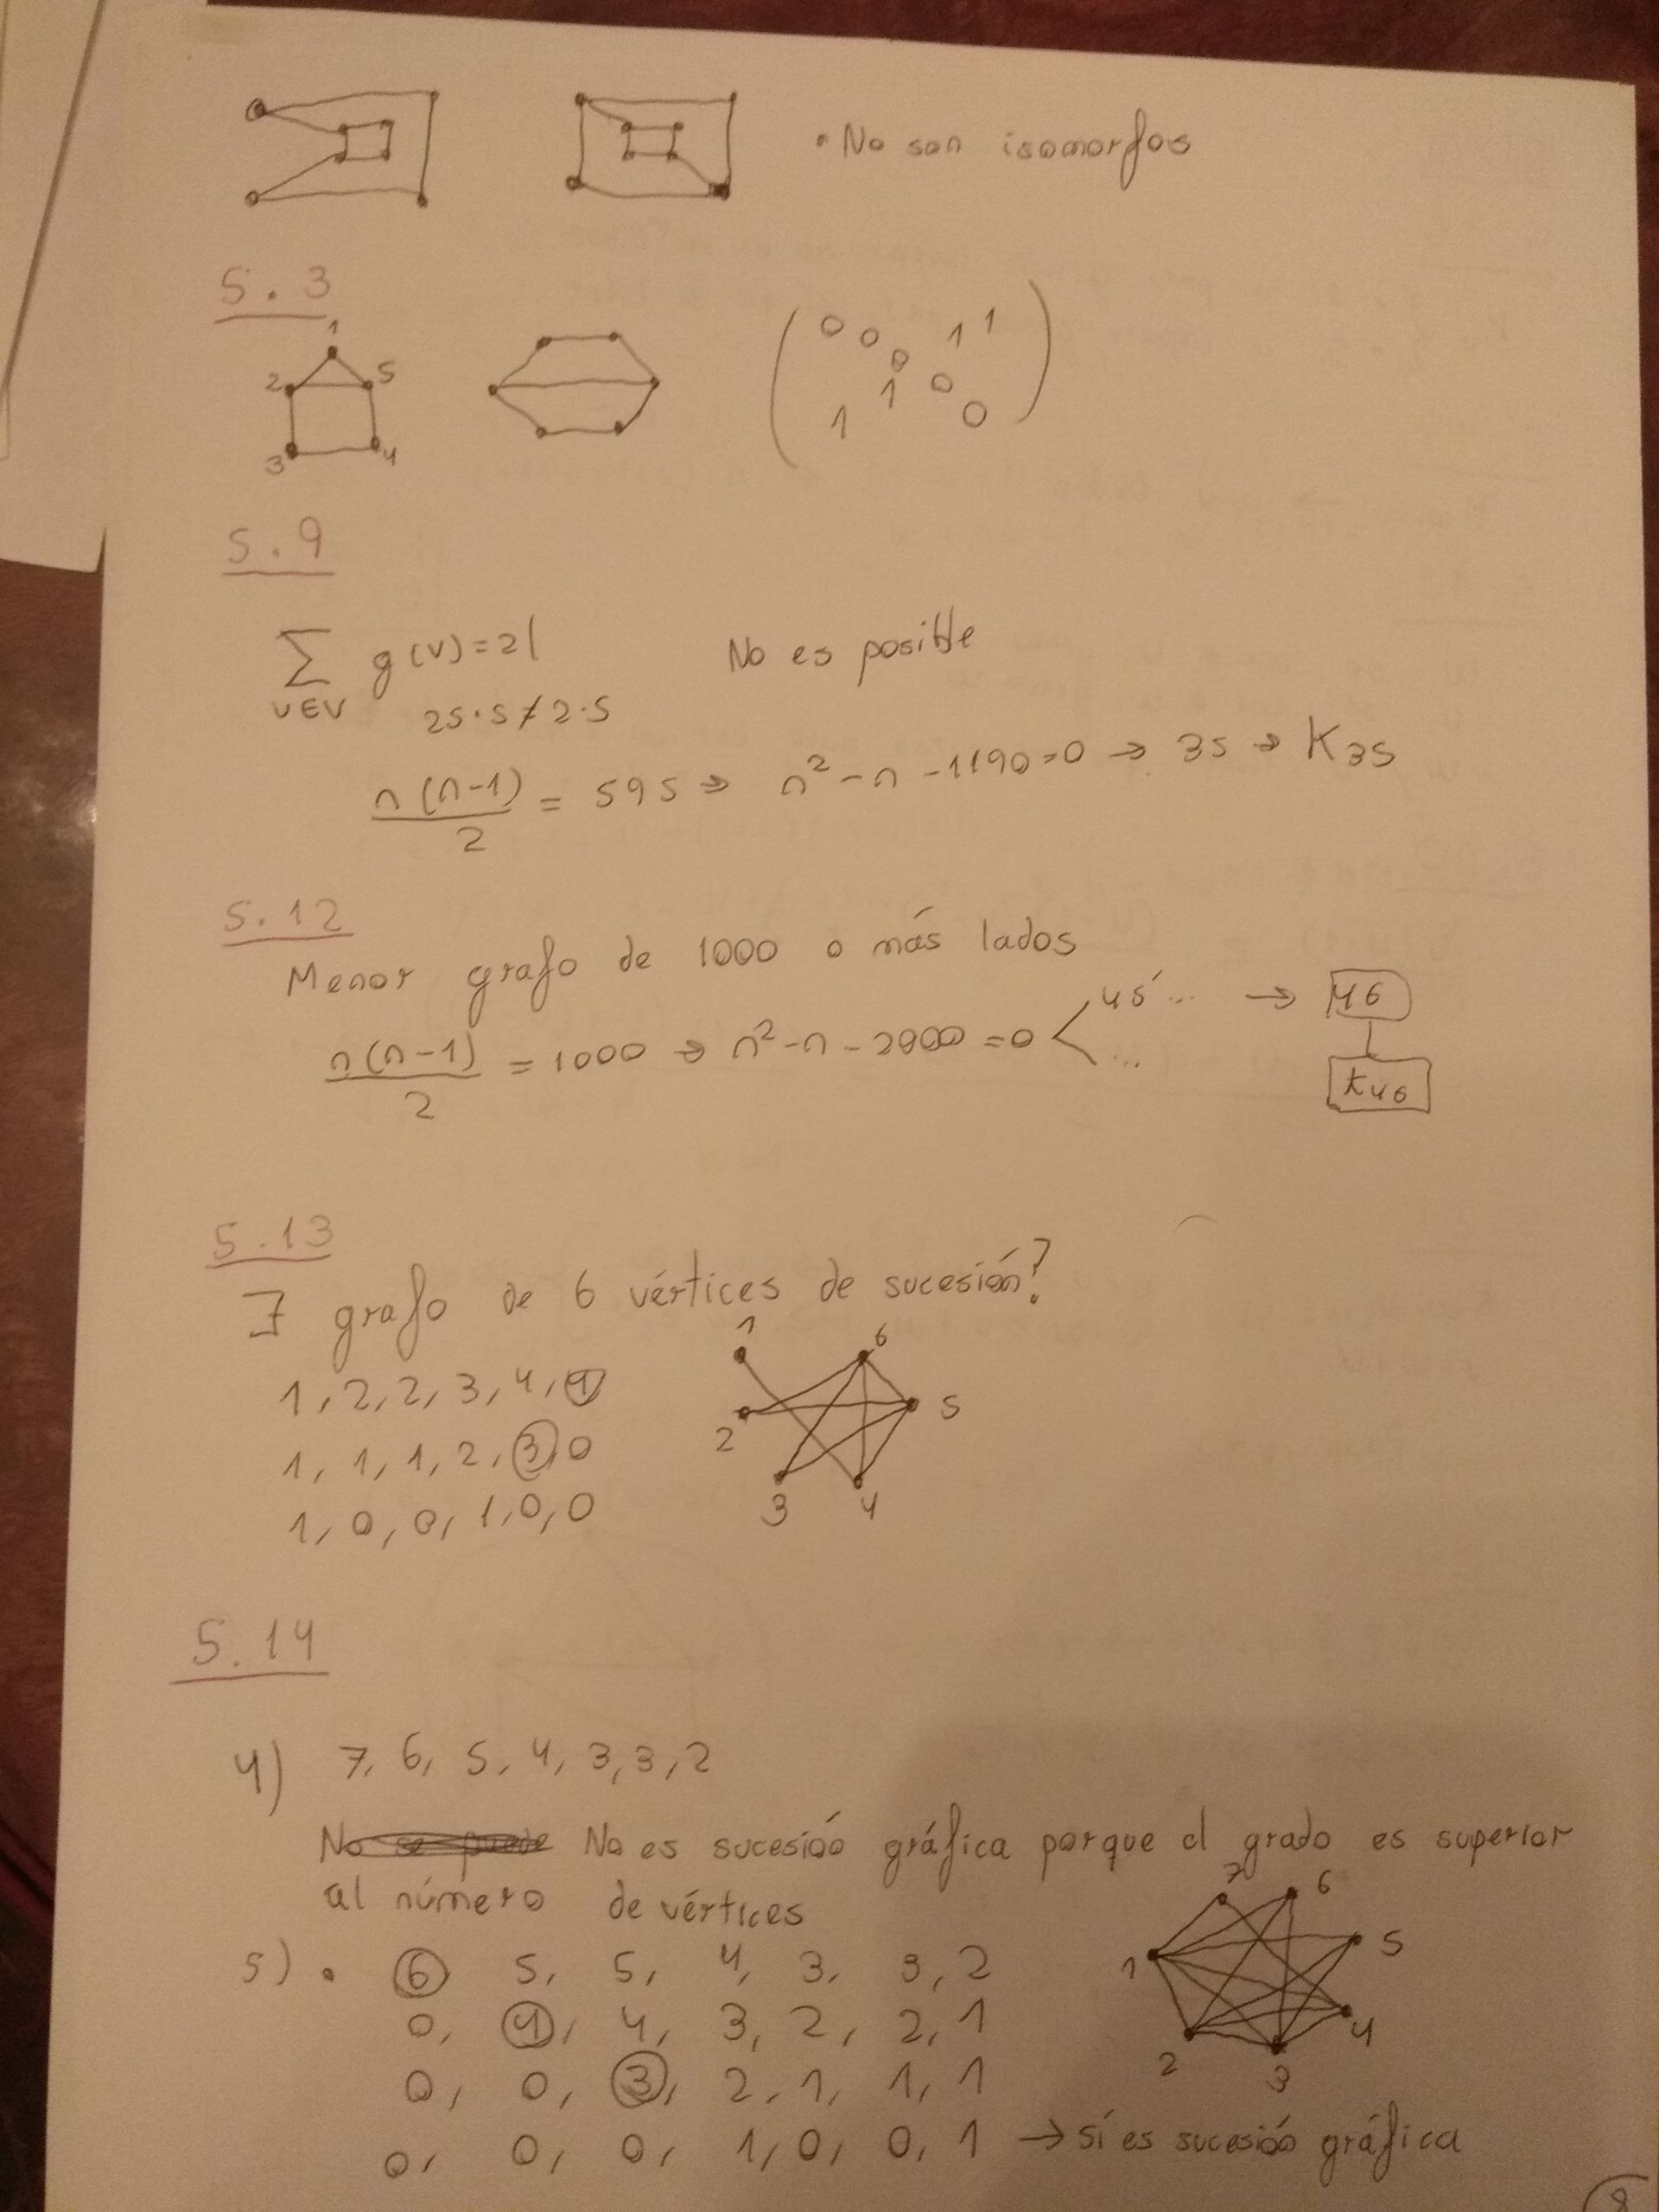 • No son isomorfos
5.3
1
2 5
3 4
0 0 1 1
0
1 0
1 0
5.9
∑ g(v)=2l No es posible
v∈V 25·5≠2·5
n(n-1)/2 = 595 → n²-n-1190=0 → 35 → K35
5.12
Menor grafo de 1000 o más lados
n(n-1)/2 = 1000 → n²-n-2000=0 < 45'... → 46
...
K46
5.13
∃ grafo de 6 vértices de sucesión?
1 6
1, 2, 2, 3, 4, 4
5
2
1, 1, 1, 2, 3, 0
1, 0, 0, 1, 0, 0
3 4
5.14
4) 7, 6, 5, 4, 3, 3, 2
No se puede No es sucesión gráfica porque el grado es superior
al número de vértices
7 6
5) • 6 5, 5, 4, 3, 3, 2
1 5
0, 4, 4, 3, 2, 2, 1
4
2 3
0, 0, 3, 2, 1, 1, 1
0, 0, 0, 1, 0, 0, 1 → sí es sucesión gráfica